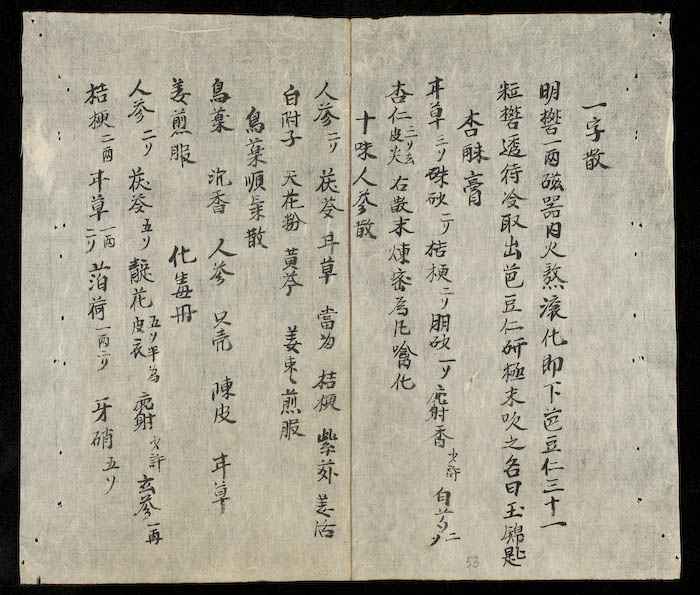 一字散
明礬一兩磁器內火熬滾化即下芭豆仁三十一
粒礬透待冷取出芭豆仁研極末吹之名曰玉鎖匙
杏酥膏
甘草三ソ硃砂二ソ桔梗二ソ朋砂一ソ麝香少許白芍二ソ
杏仁三ソ去皮炎右散末煉蜜為凡噙化
十味人參散
人參二ソ茯苓甘草當为桔梗紫苏羌活
白附子天花粉黃芩姜束煎服
烏葉順气散
烏葉沉香人參只壳陳皮甘草
姜煎服
化毒丹
人參二ソ茯苓五ソ靛花五ソ平為皮衣麝少許玄參一兩
桔梗二兩甘草一兩二ソ萡荷一兩二ソ牙硝五ソ
53